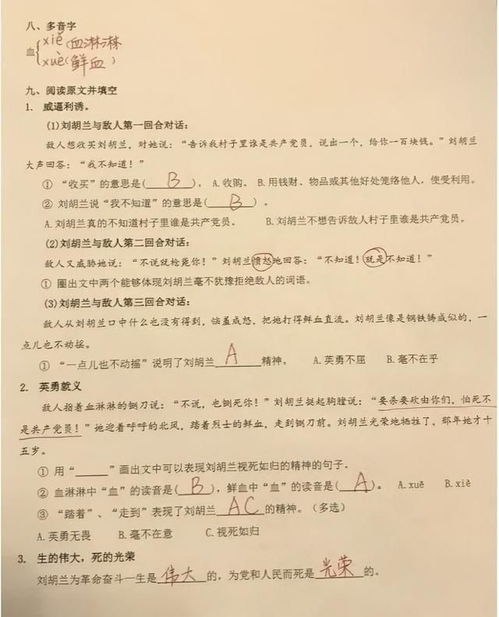 八、多音字
血{xiě(血淋淋)
xuè(鲜血)
九、阅读原文并填空
1. 威逼利诱。
(1)刘胡兰与敌人第一回合对话:
敌人想收买刘胡兰,对她说:“告诉我村子里谁是共产党员,说出一个,给你一百块钱。”刘胡兰
大声回答:“我不知道!”
① “收买”的意思是( B )。 A.收购。 B.用钱财、物品或其他好处笼络他人,使受利用。
② 刘胡兰说“我不知道”的意思是( B )。
A.刘胡兰真的不知道村子里谁是共产党员。 B.刘胡兰不想告诉敌人村子里谁是共产党员。
(2)刘胡兰与敌人第二回合对话:
敌人又威胁她说:“不说就枪毙你!”刘胡兰愤怒地回答:“不知道!就是不知道!”
① 圈出文中两个能够体现刘胡兰毫不犹豫拒绝敌人的词语。
(3)刘胡兰与敌人第三回合对话:
敌人从刘胡兰口中什么也没有得到,恼羞成怒,把她打得鲜血直流。刘胡兰像是钢铁铸成似的,一
点儿也不动摇。
① “一点儿也不动摇”说明了刘胡兰 A 精神。 A.英勇不屈 B.毫不在乎
2. 英勇就义
敌人指着血淋淋的铡刀说:“不说,也铡死你!”刘胡兰挺起胸膛说:“要杀要砍由你们,怕死不
是共产党员!”她迎着呼呼的北风,踏着烈士的鲜血,走到铡刀前。刘胡兰光荣地牺牲了,那年她才十
五岁。
① 用“______”画出文中可以表现刘胡兰视死如归的精神的句子。
② 血淋淋中“血”的读音是( B ),鲜血中“血”的读音是( A )。 A.xuè B.xiě
③ “踏着”、“走到”表现了刘胡兰 AC 的精神。(多选)
A.英勇无畏 B.毫不在意 C.视死如归
3. 生的伟大,死的光荣
刘胡兰为革命奋斗一生是 伟大 的,为党和人民而死是 光荣 的。